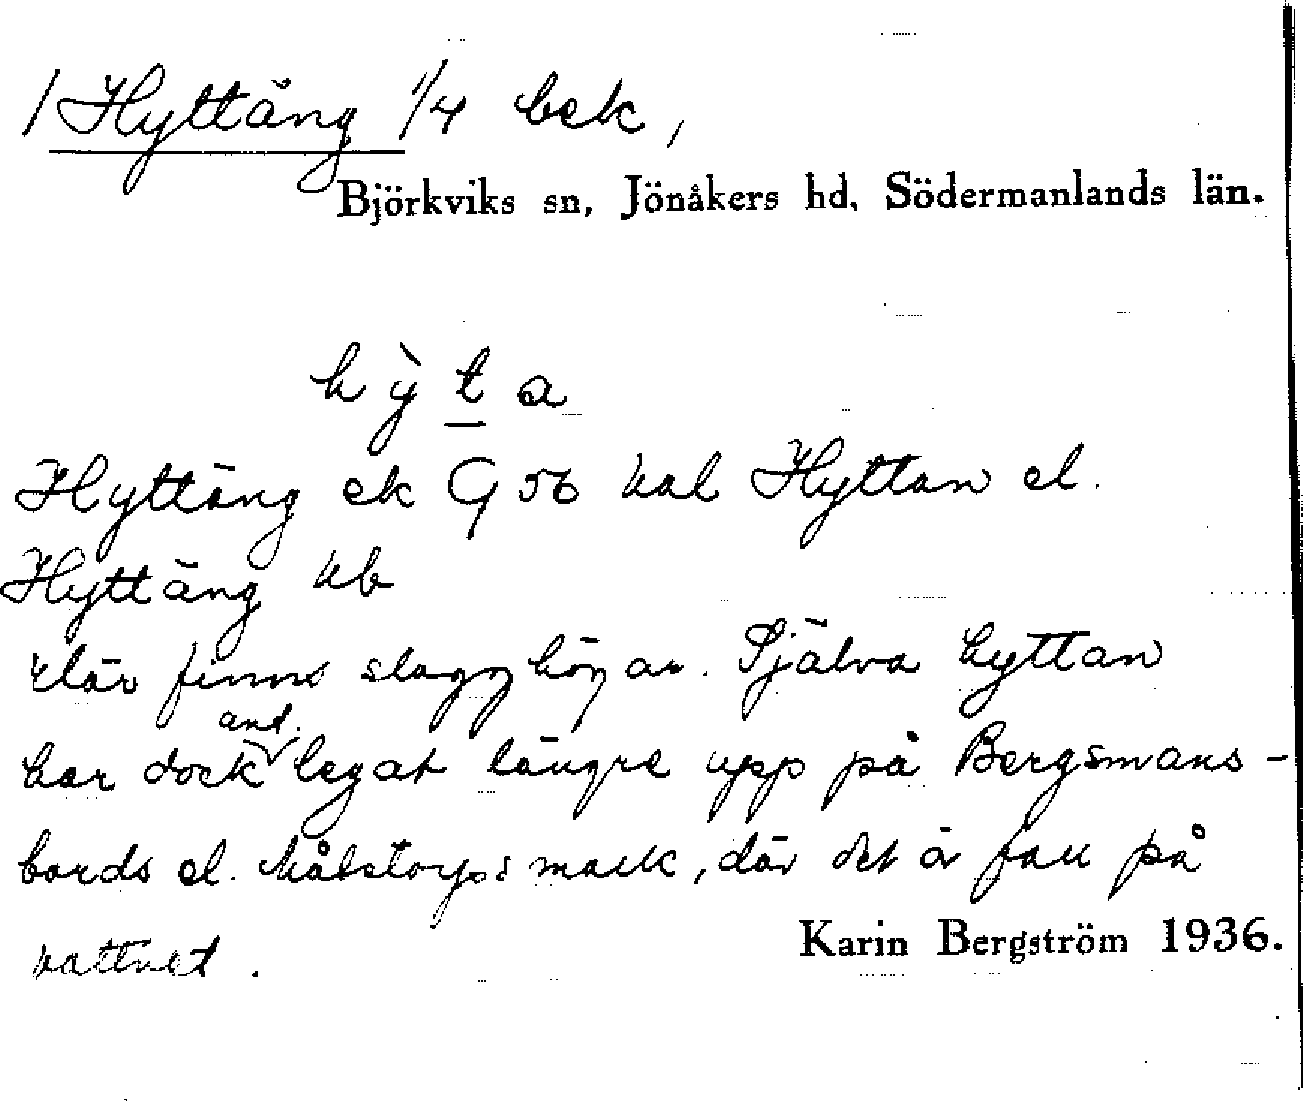 / Hyttäng 1/4 bek,
Björkviks sn, Jönåkers hd, Södermanlands län.
hỳ t a
Hyttäng ek G 56 kal Hyttan el.
Hyttäng kb
där finns slagghögar. Själva hyttan
har dock anl. legat längre upp på Bergsmans-
bords el. mark, där det är fall på
vattnet.
Karin Bergström 1936.